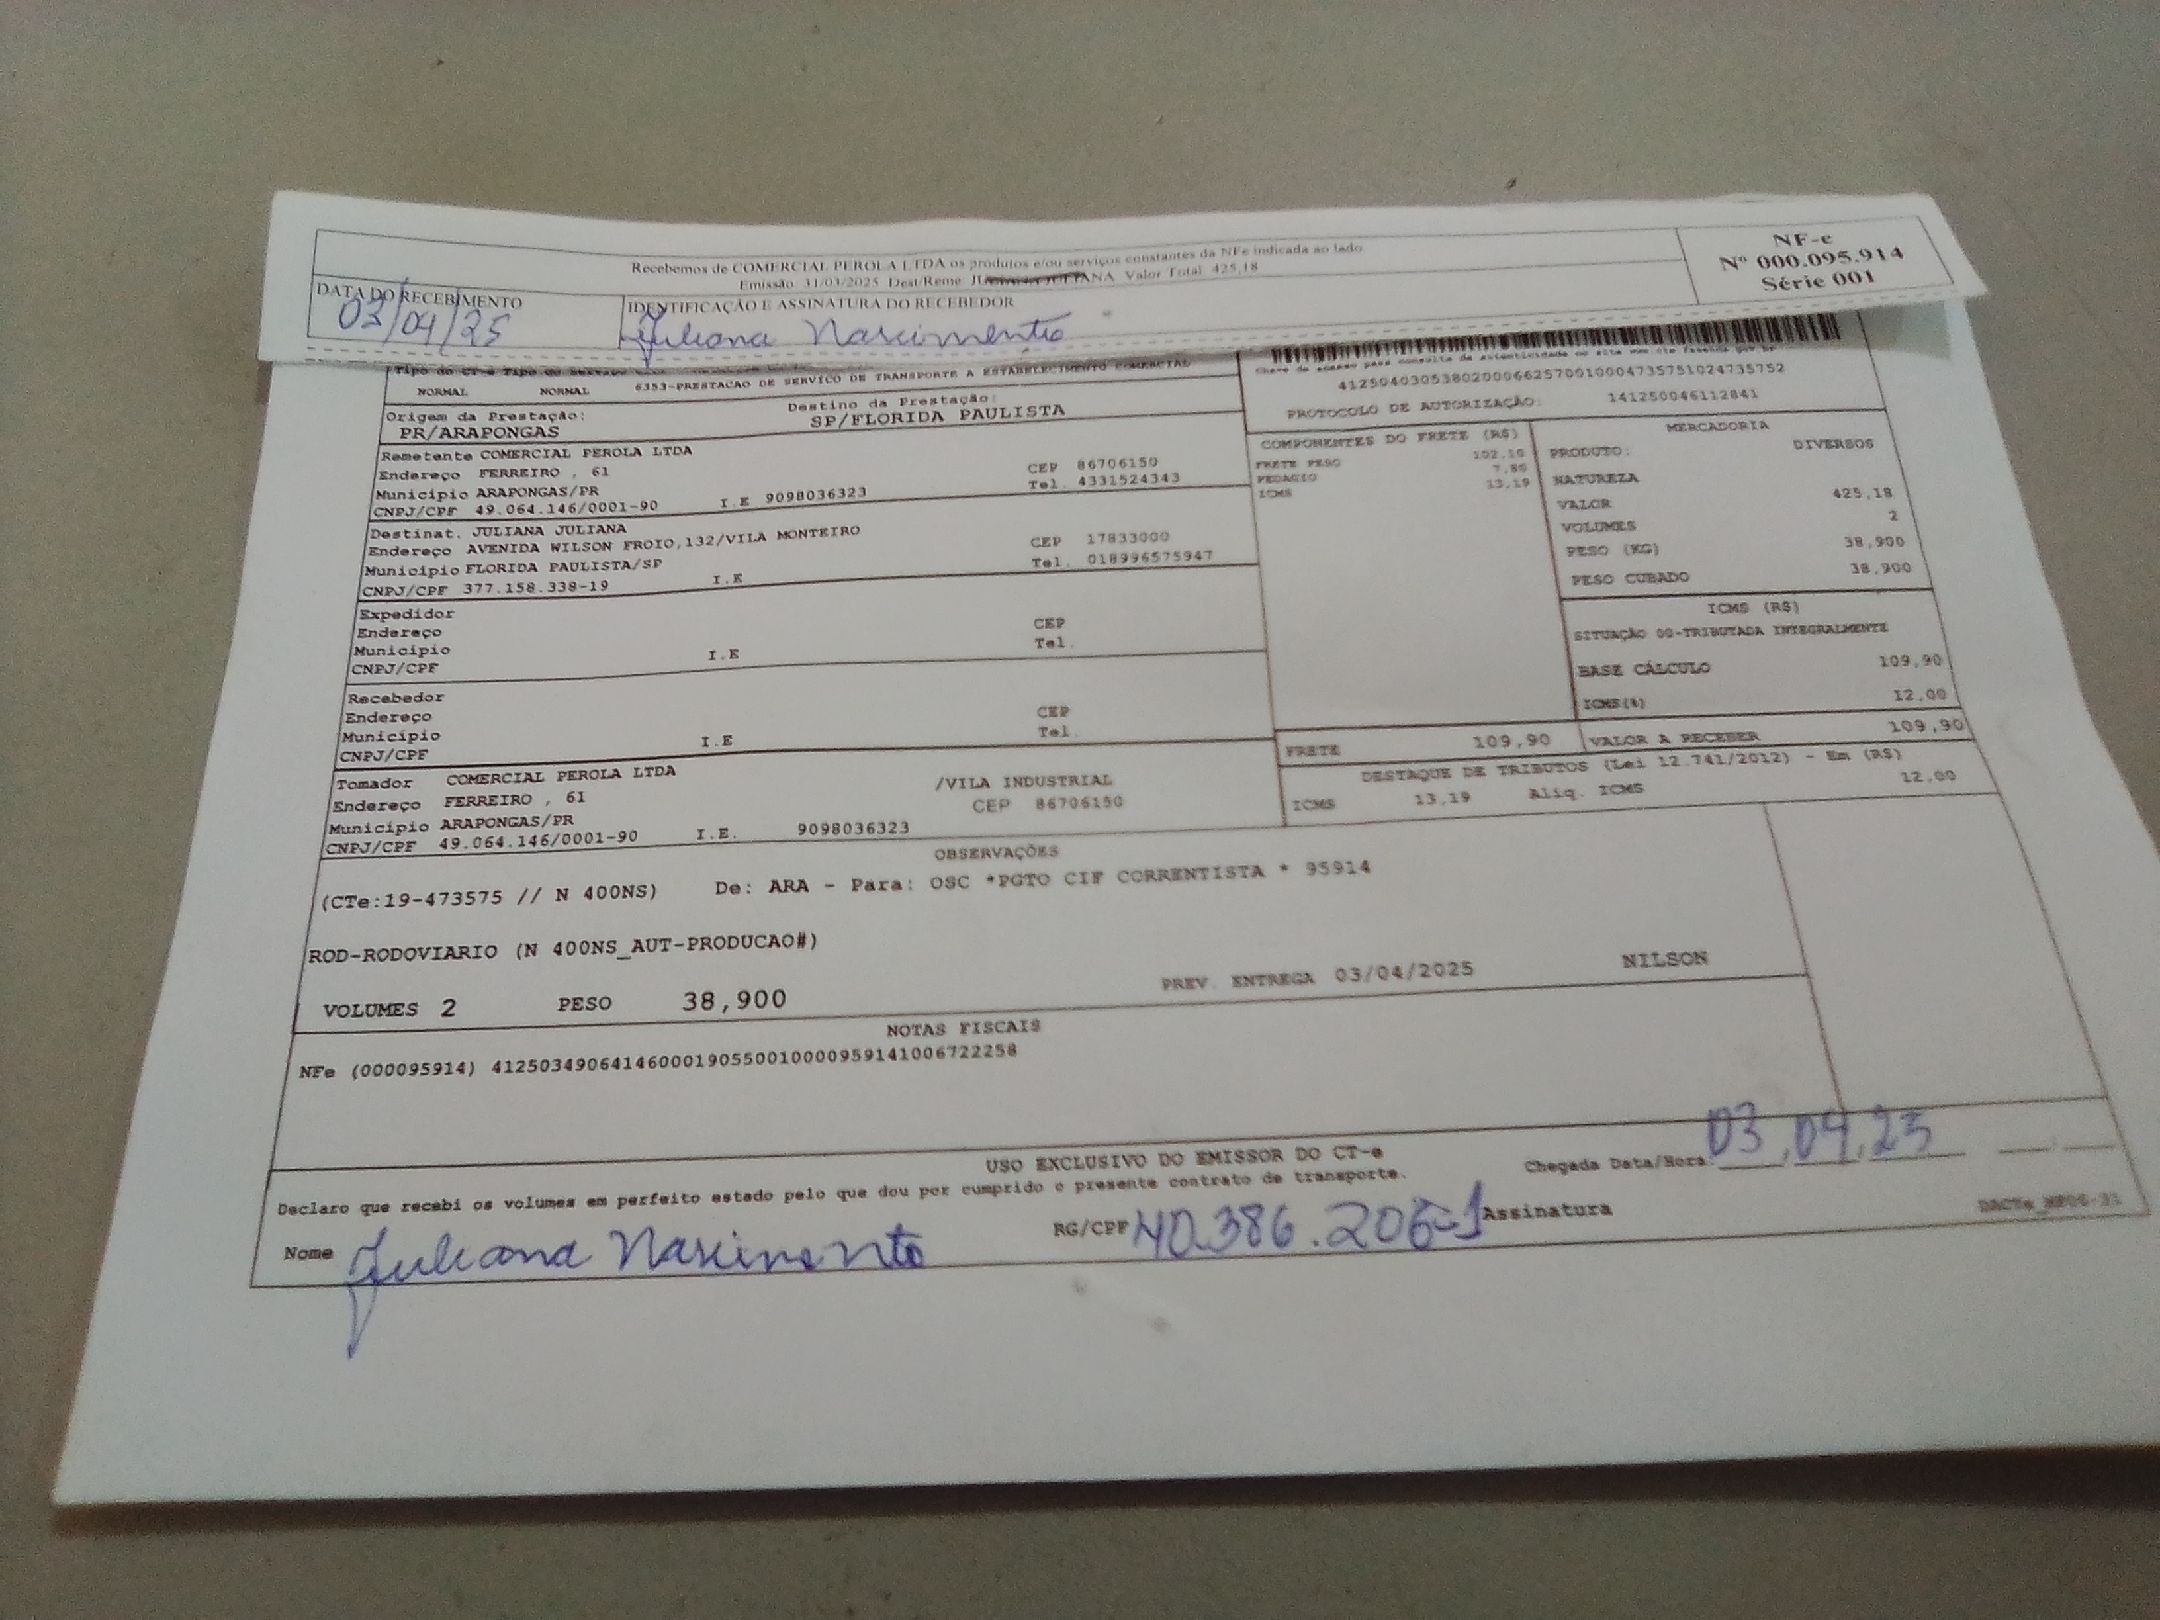 Recebemos de COMERCIAL PEROLA LTDA os produtos e/ou serviços constantes da NFe indicada ao lado
Emissão 31/03/2025 Dest/Reme JULIANA Valor Total 425,18
NF-e
Nº 000.095.914
Série 001
DATA DO RECEBIMENTO
03/04/25
IDENTIFICAÇÃO E ASSINATURA DO RECEBEDOR
Juliana Nascimento
NORMAL NORMAL 6353-PRESTACAO DE SERVICO DE TRANSPORTE A ESTABELECIMENTO COMERCIAL
Origem da Prestação: Destino da Prestação:
PR/ARAPONGAS SP/FLORIDA PAULISTA
Chave de acesso para consulta de autenticidade no site www.cte.fazenda.gov.br
41250403053802000662570010004735751024735752
PROTOCOLO DE AUTORIZAÇÃO: 141250046112841
Remetente COMERCIAL PEROLA LTDA
Endereço FERREIRO , 61 CEP 86706150
Município ARAPONGAS/PR Tel. 4331524343
CNPJ/CPF 49.064.146/0001-90 I.E 9098036323
Destinat. JULIANA JULIANA
Endereço AVENIDA WILSON FROIO,132/VILA MONTEIRO CEP 17833000
Município FLORIDA PAULISTA/SP Tel. 018996575947
CNPJ/CPF 377.158.338-19 I.E
Expedidor
Endereço CEP
Município Tel.
CNPJ/CPF I.E
Recebedor
Endereço CEP
Município Tel.
CNPJ/CPF I.E
Tomador COMERCIAL PEROLA LTDA /VILA INDUSTRIAL
Endereço FERREIRO , 61 CEP 86706150
Município ARAPONGAS/PR
CNPJ/CPF 49.064.146/0001-90 I.E. 9098036323
COMPONENTES DO FRETE (R$)
FRETE PESO 102,10
PEDAGIO 7,80
ICMS 13,19
MERCADORIA
PRODUTO: DIVERSOS
NATUREZA
VALOR 425,18
VOLUMES 2
PESO (KG) 38,900
PESO CUBADO 38,900
ICMS (R$)
SITUAÇÃO 00-TRIBUTADA INTEGRALMENTE
BASE CÁLCULO 109,90
ICMS(%) 12,00
FRETE 109,90 VALOR A RECEBER 109,90
DESTAQUE DE TRIBUTOS (Lei 12.741/2012) - Em (R$)
ICMS 13,19 Aliq. ICMS 12,00
OBSERVAÇÕES
(CTe:19-473575 // N 400NS) De: ARA - Para: OSC *PGTO CIF CORRENTISTA * 95914
ROD-RODOVIARIO (N 400NS_AUT-PRODUCAO#)
VOLUMES 2 PESO 38,900 PREV. ENTREGA 03/04/2025 NILSON
NOTAS FISCAIS
NFe (000095914) 41250349064146000190550010000959141006722258
USO EXCLUSIVO DO EMISSOR DO CT-e
Declaro que recebi os volumes em perfeito estado pelo que dou por cumprido o presente contrato de transporte.
Chegada Data/Hora: 03.04.25
Nome Juliana Nascimento RG/CPF 40.386.206-1 Assinatura